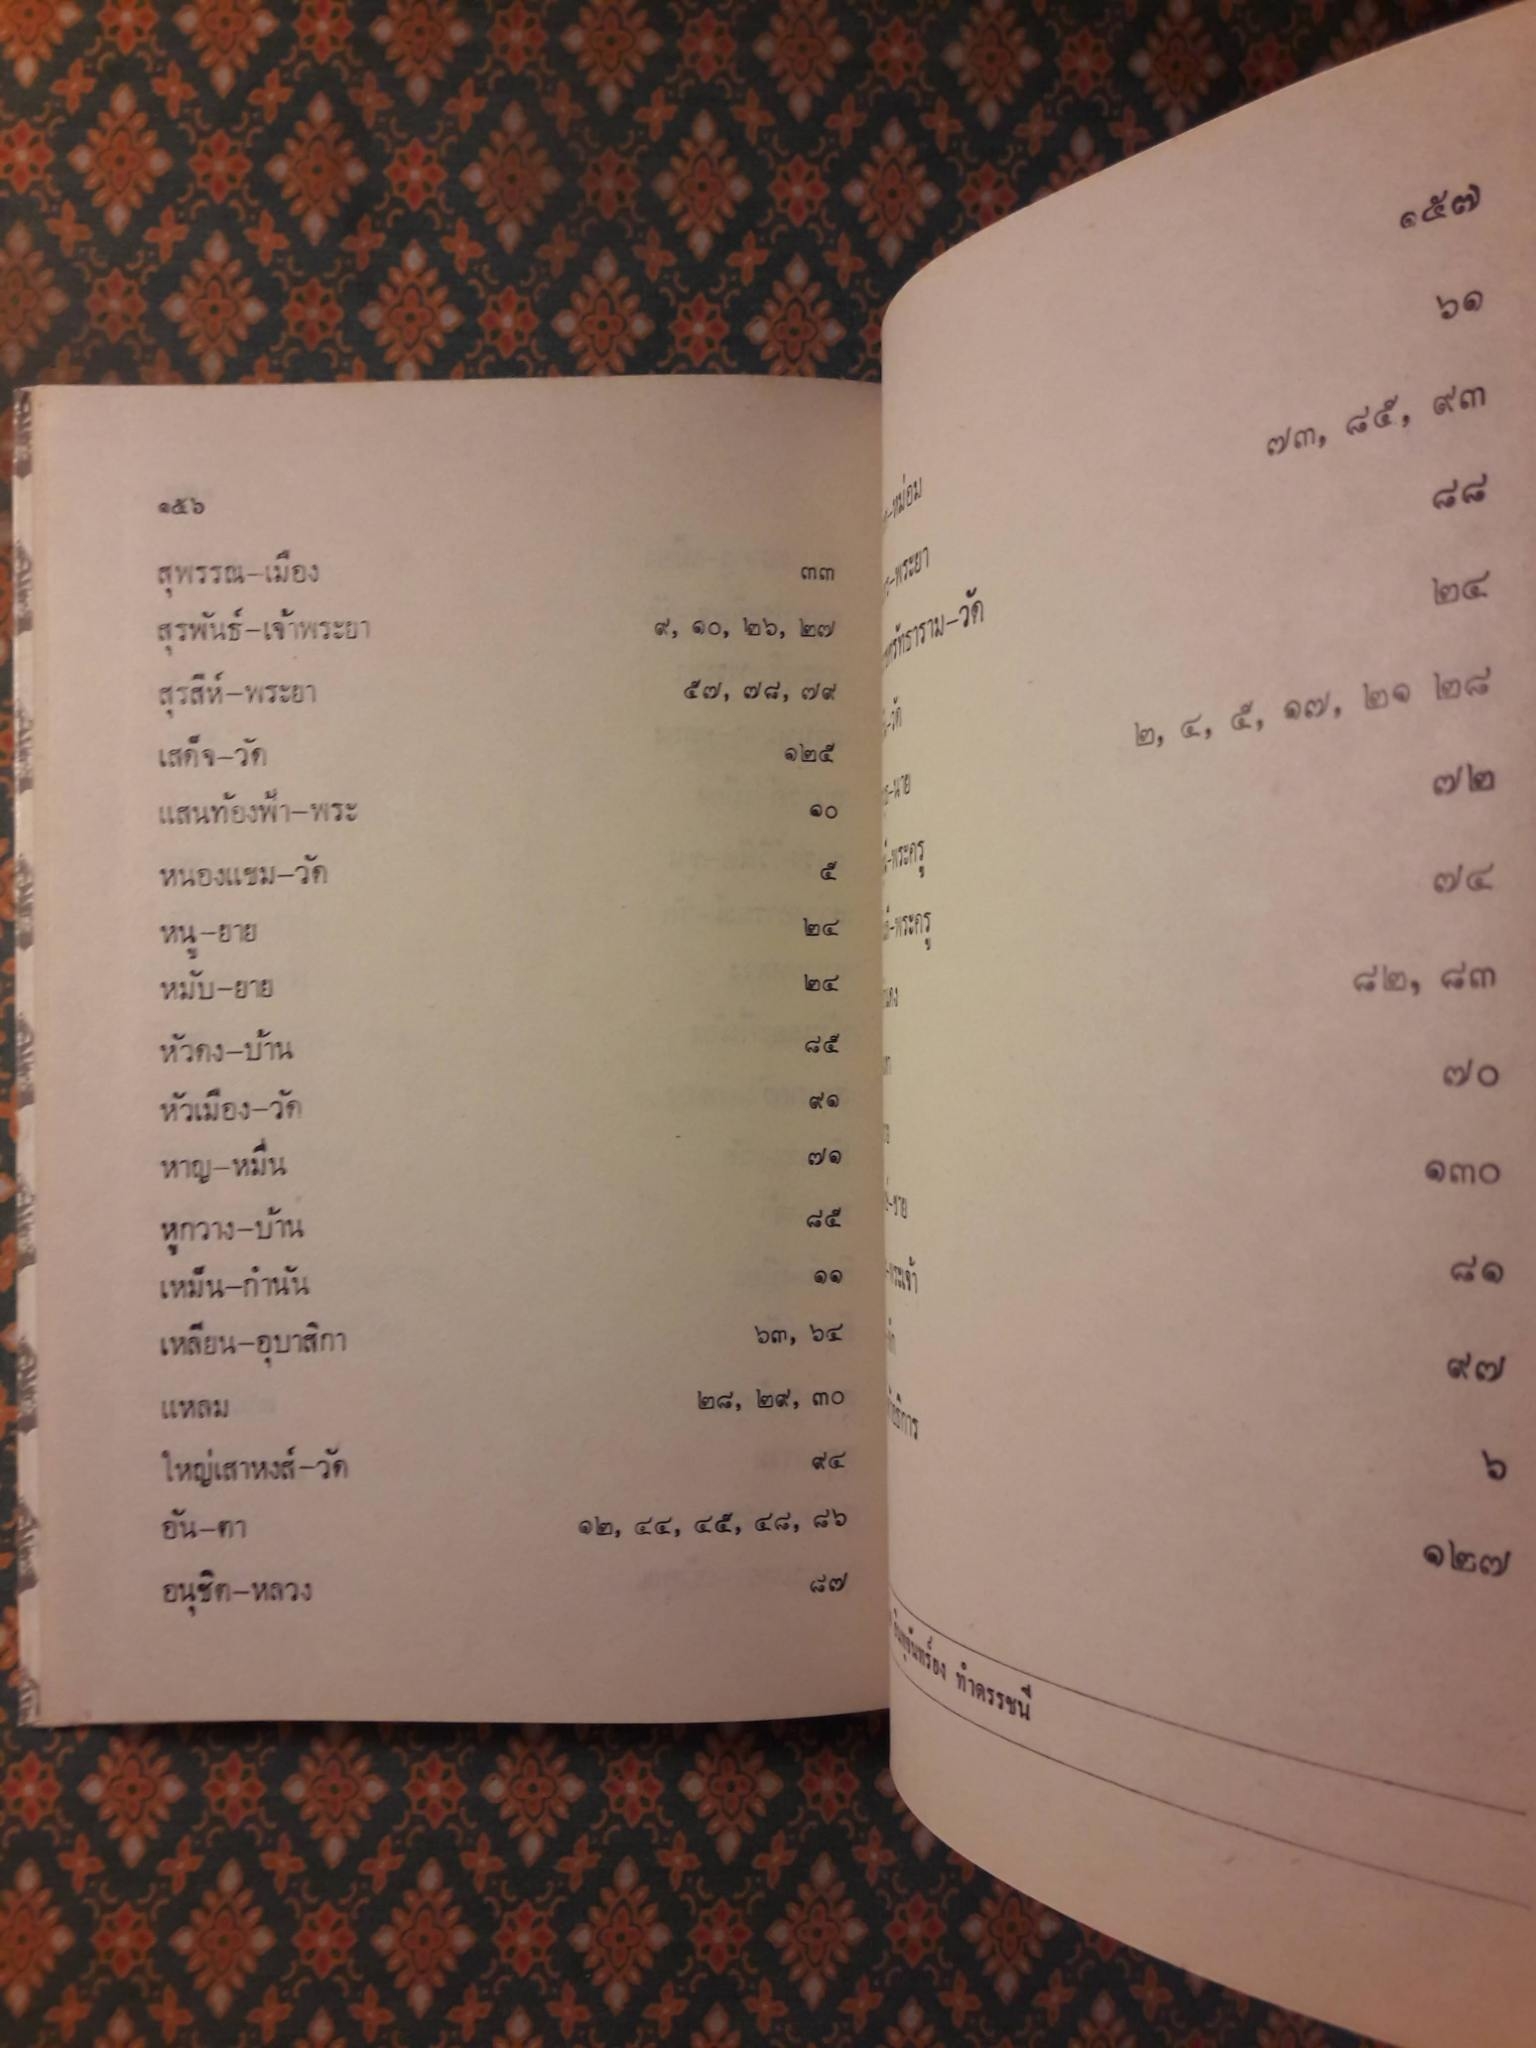 ๑๕๖
สุพรรณ–เมือง ๓๓
สุรพันธ์–เจ้าพระยา ๙, ๑๐, ๒๖, ๒๗
สุรสีห์–พระยา ๕๗, ๗๘, ๗๙
เสด็จ–วัด ๑๒๕
แสนท้องฟ้า–พระ ๑๐
หนองแขม–วัด ๕
หนู–ยาย ๒๔
หมับ–ยาย ๒๔
หัวดง–บ้าน ๘๕
หัวเมือง–วัด ๙๑
หาญ–หมื่น ๗๑
หูกวาง–บ้าน ๘๕
เหม็น–กำนัน ๑๑
เหลียน–อุบาสิกา ๖๓, ๖๔
แหลม ๒๘, ๒๙, ๓๐
ใหญ่เสาหงส์–วัด ๙๔
อ้น–ตา ๑๒, ๔๔, ๔๕, ๔๘, ๘๖
อนุชิต–หลวง ๘๗
๑๕๗
–หม่อม ๖๑
–พระยา ๗๓, ๘๕, ๙๓
–วัด ๘๘
–วัด ๒๔
–นาย ๒, ๔, ๕, ๑๗, ๒๑ ๒๘
–พระครู ๗๒
–พระครู ๗๔
๘๒, ๘๓
๗๐
๑๓๐
๘๑
–พระเจ้า ๙๗
๖
๑๒๗
ทำดรรชนี